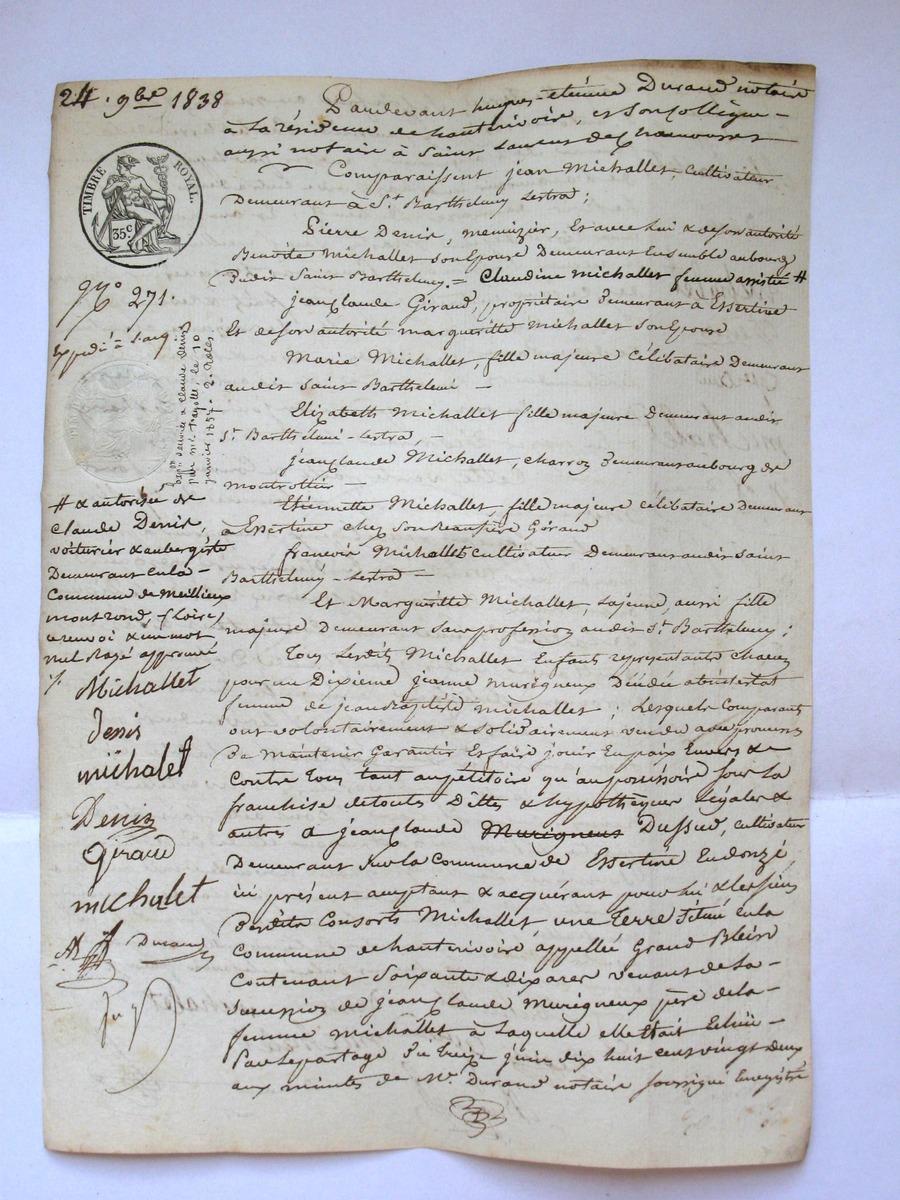 24. 9bre 1838
Pardevant hugues-étienne Durand notaire
à la résidence de hauterivoire, et son collègue -
aussi notaire à Saint Laurent de Chamousset
Comparaissent jean Michallet, cultivateur
Demeurant à St. Barthelemy Lestra ;
Pierre Denis, menuizier, Et avec lui & de son autorité
Benoite Michallet son Epouse Demeurant Ensemble au bourg
Dudit Saint Barthelemy. = Claudine Michallet femme assistée #
jean claude Giraud, propriétaire Demeurant à Essertine
Et de son autorité margueritte Michallet son Epouse
Marie Michallet, fille majeure Célibataire Demeurant
audit Saint Barthelemi -
Elizabeth Michallet fille majeure Demeurant audit
St. Barthelemi-Lestra, -
jean claude Michallet, charron Demeurant au bourg de
montrottier -
Etiennette Michallet, fille majeure célibataire Demeurant
à Essertine chez son Beaufrère Giraud
francois Michallet Cultivateur Demeurant audit Saint
Barthelemy-Lestra -
Et Margueritte Michallet, la jeune, aussi fille
majeure Demeurant sans profession audit St. Barthelemy ;
Tous Lesdits Michallet Enfants representants chacun
pour un Dixième jeanne Murigneux Décédée abintestat
femme de jean Baptiste Michallet ; Lesquels Comparants
ont volontairement & solidairement vendu avec promesse
De Maintenir Garantir Et faire jouir En paix Envers &
Contre Tous tant au pétitoire qu'au possessoire sous la
franchise de toutes Dettes & hypothèques Légales &
autres a jean claude Murigneux Dussud, cultivateur
Demeurant sur la Commune de Essertine En donzé,
ici présent acceptant & acquérant pour lui & les siens
Desdits Consorts Michallet, une Terre Située En la
Commune de hauterivoire, appellée Grand Blein
Contenant Soixante & dix ares venant de la -
succession de jean claude Murigneux père de la -
femme Michallet à Laquelle elle Etait Echüe -
Par Le partage Du treize juin dix huit cent vingt deux
aux minutes de Me. Durand notaire soussigné Enregistré
TIMBRE ROYAL.
35c
No 271.
Expédié
Claude Denis
par me
le 10
janvier 1857. 2. Roles
# & autorisée de
Claude Denis,
voiturier & aubergiste
Demeurant En la -
Commune de Meillieux
montrond, (Loire)
renvoi & un mot
nul Rayé approuvé
Michallet
Denis
michalet
Denis
Giraud
michalet
Durand